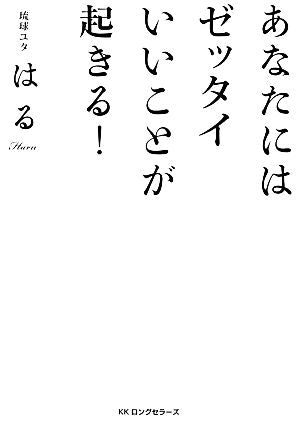 あなたには
ゼッタイ
いいことが
起きる!
琉球ユタ
はる
Haru
KKロングセラーズ